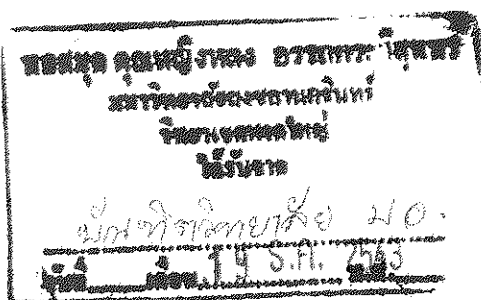 หอสมุด คุณหญิงหลง อรรถกระวีสุนทร
มหาวิทยาลัยสงขลานครินทร์
วิทยาเขตหาดใหญ่
ได้รับจาก
บัณฑิตวิทยาลัย มอ.
วันที่ เดือน 19 ธ.ค. 2543